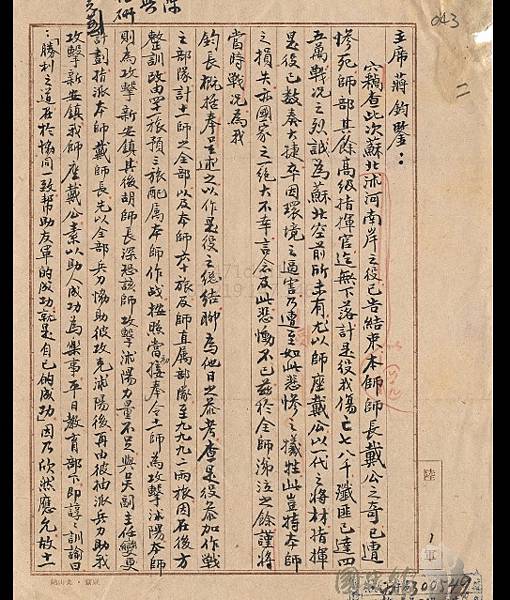 主席蔣鈞鑒：
竊查此次蘇北沭河南岸之役已告結束本師師長戴公之奇已遭
慘死師部其餘高級指揮官迄無下落計是役我傷亡七八千殲匪已達四
五萬戰況之烈誠為蘇北空前所未有尤以師座戴公以一代之將材指揮
是役已數奏大捷卒因環境之逼害乃遭至如此悲慘之犧牲此豈特本師
之損失亦國家之一絕大不幸言念及此悲慟不已茲於全師涕泣之餘謹將
當時戰況為我
鈞長概括奉呈述之以作是役之總結聊為他日之參考查是役參加作戰
之部隊計十一師之全部以及本師六十旅及師直屬部隊至九九九二兩旅因在後方
整訓故由第一旅預三旅配屬本師作戰極照當接奉令十一師為攻擊沭陽本師
則為攻擊新安鎮其後胡師長深恐該師攻擊沭陽力量不足與吳副主任變更
計劃指派本師戴師長先以全部兵力協助彼攻克沭陽後再由彼抽派兵力助我
攻擊新安鎮我師座戴公素以助人成功為樂事平日教育部下即諄諄訓諭曰
「勝利之道在於協同一致幫助友軍的成功就是自己的成功」因乃欣然應允故十一
043
二
陸
軍
6300549